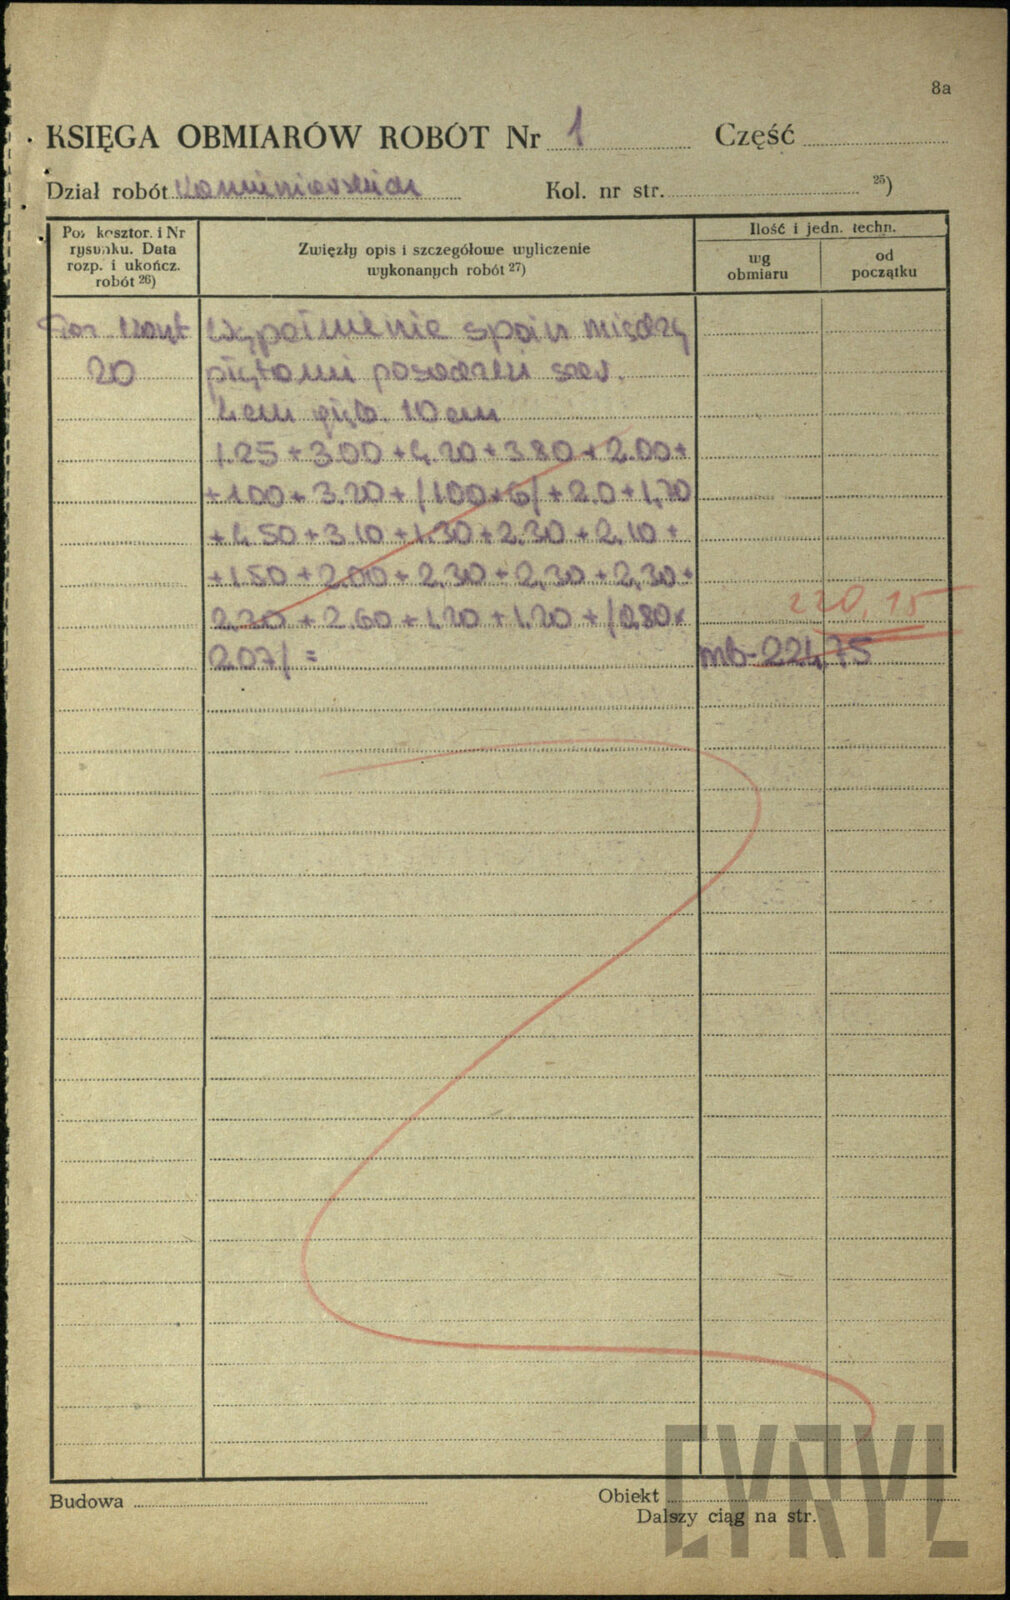 8a
KSIĘGA OBMIARÓW ROBÓT Nr 1 Część
Dział robót Kamieniarskich Kol. nr str. 25)
Poz kosztor. i Nr rysunku. Data rozp. i ukończ. robót 26)
Zwięzły opis i szczegółowe wyliczenie wykonanych robót 27)
Ilość i jedn. techn.
wg obmiaru
od początku
Wypełnienie spoin między
20 płytami posadzki szer.
4 cm głęb. 10 cm
1.25 + 3.00 + 4.20 + 3.80 + 2.00 +
+ 1.00 + 3.20 + /1.00 × 6/ + 2.0 + 1,70
+ 4.50 + 3.10 + 1.30 + 2.30 + 2,10 +
+ 1.50 + 2.00 + 2,30 + 2,30 + 2,30 +
220,15
2.20 + 2.60 + 1.20 + 1.20 + /0,80 ×
207/ = mb - 224,75
Budowa Obiekt
Dalszy ciąg na str.
CYRYL